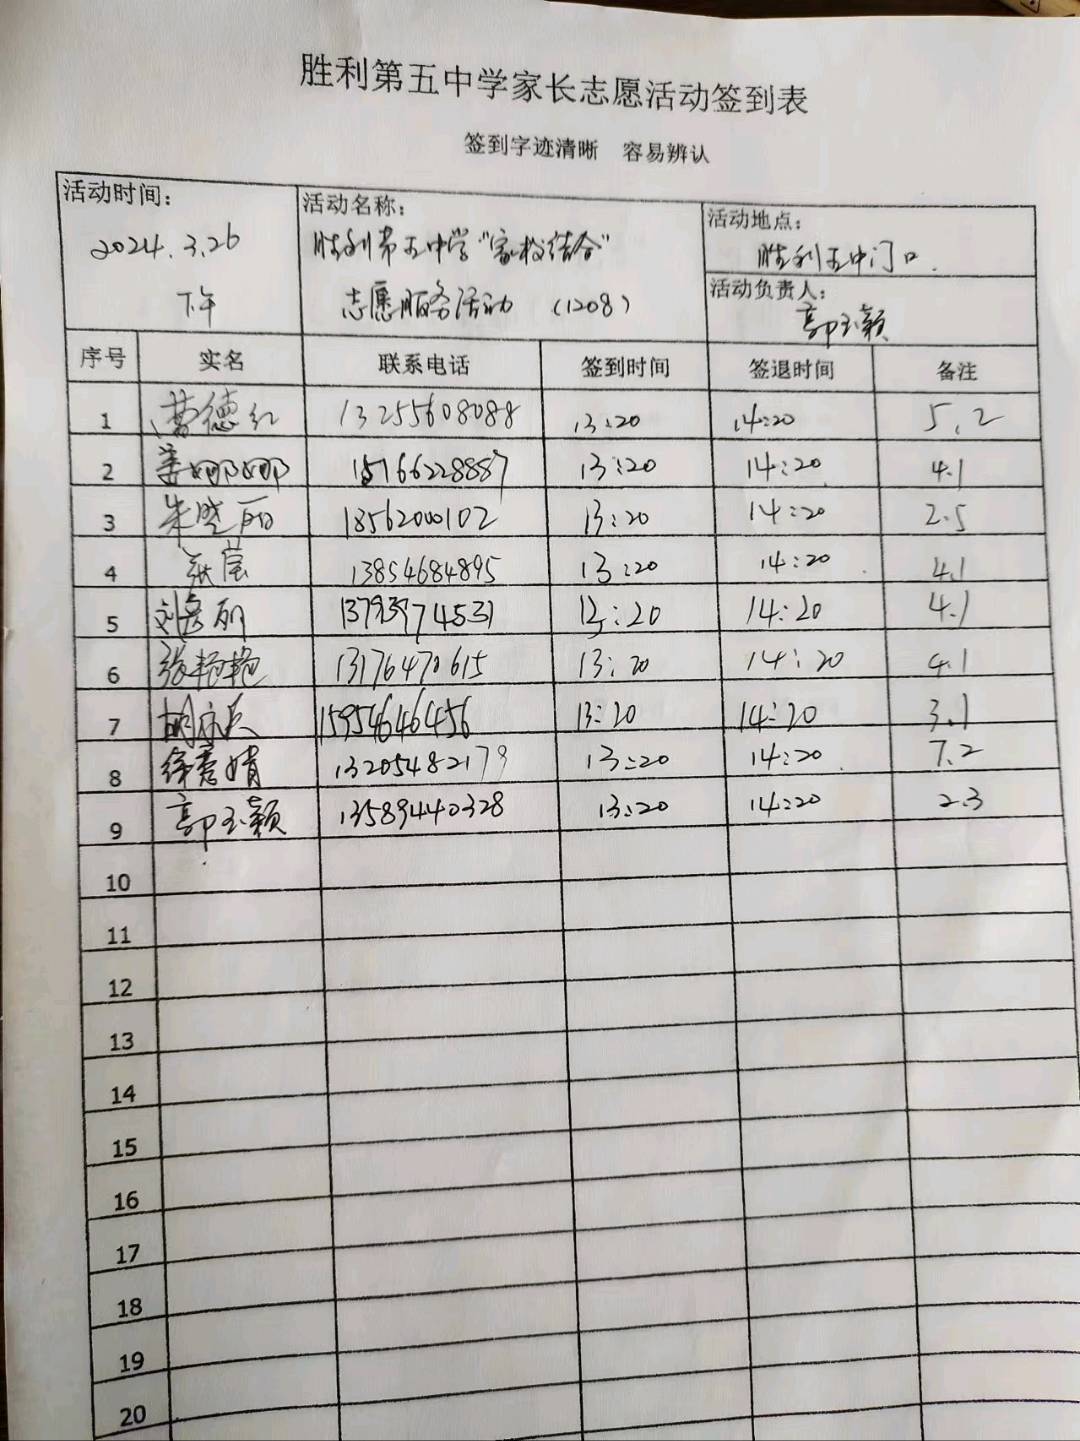 胜利第五中学家长志愿活动签到表
签到字迹清晰 容易辨认
活动时间: 活动名称: 活动地点:
2024.3.26 胜利第五中学"家校结合" 胜利五中门口.
下午 志愿服务活动 (1208) 活动负责人:
郭玉颖
序号 实名 联系电话 签到时间 签退时间 备注
1 曹德红 13255608088 13:20 14:20 5.2
2 姜娜娜 15166228887 13:20 14:20 4.1
3 朱晓丽 18562000102 13:20 14:20 2.5
4 张莹 13854684895 13:20 14:20 4.1
5 13793974531 13:20 14:20 4.1
6 张艳艳 13176470615 13:20 14:20 4.1
7 15954646456 13:20 14:20 3.1
8 13205482179 13:20 14:20 7.2
9 郭玉颖 13589440328 13:20 14:20 2.3
10
11
12
13
14
15
16
17
18
19
20